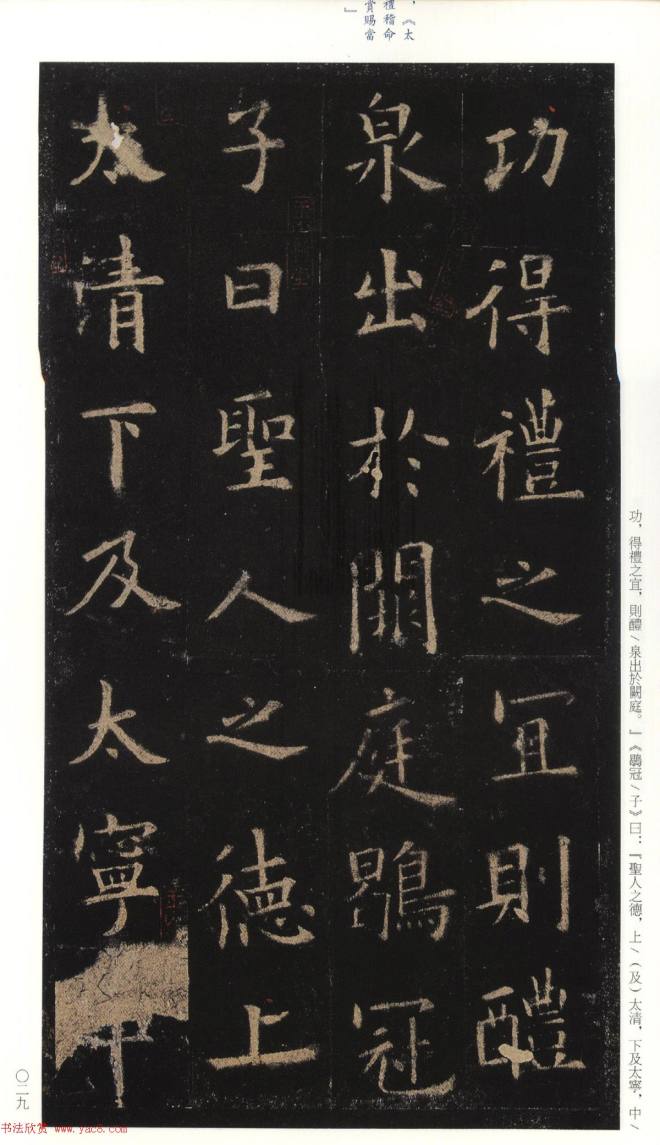 ，《太
禮稽命
賞賜當
』
功得禮之宜則醴
泉出於闕庭鶡冠
子曰聖人之德上
太清下及太寧中
功，得禮之宜，則醴\泉出於闕庭。』《鶡冠\子》曰：『聖人之德，上\（及）太清，下及太寧，中\
〇二九
书法欣赏 www.yac8.com